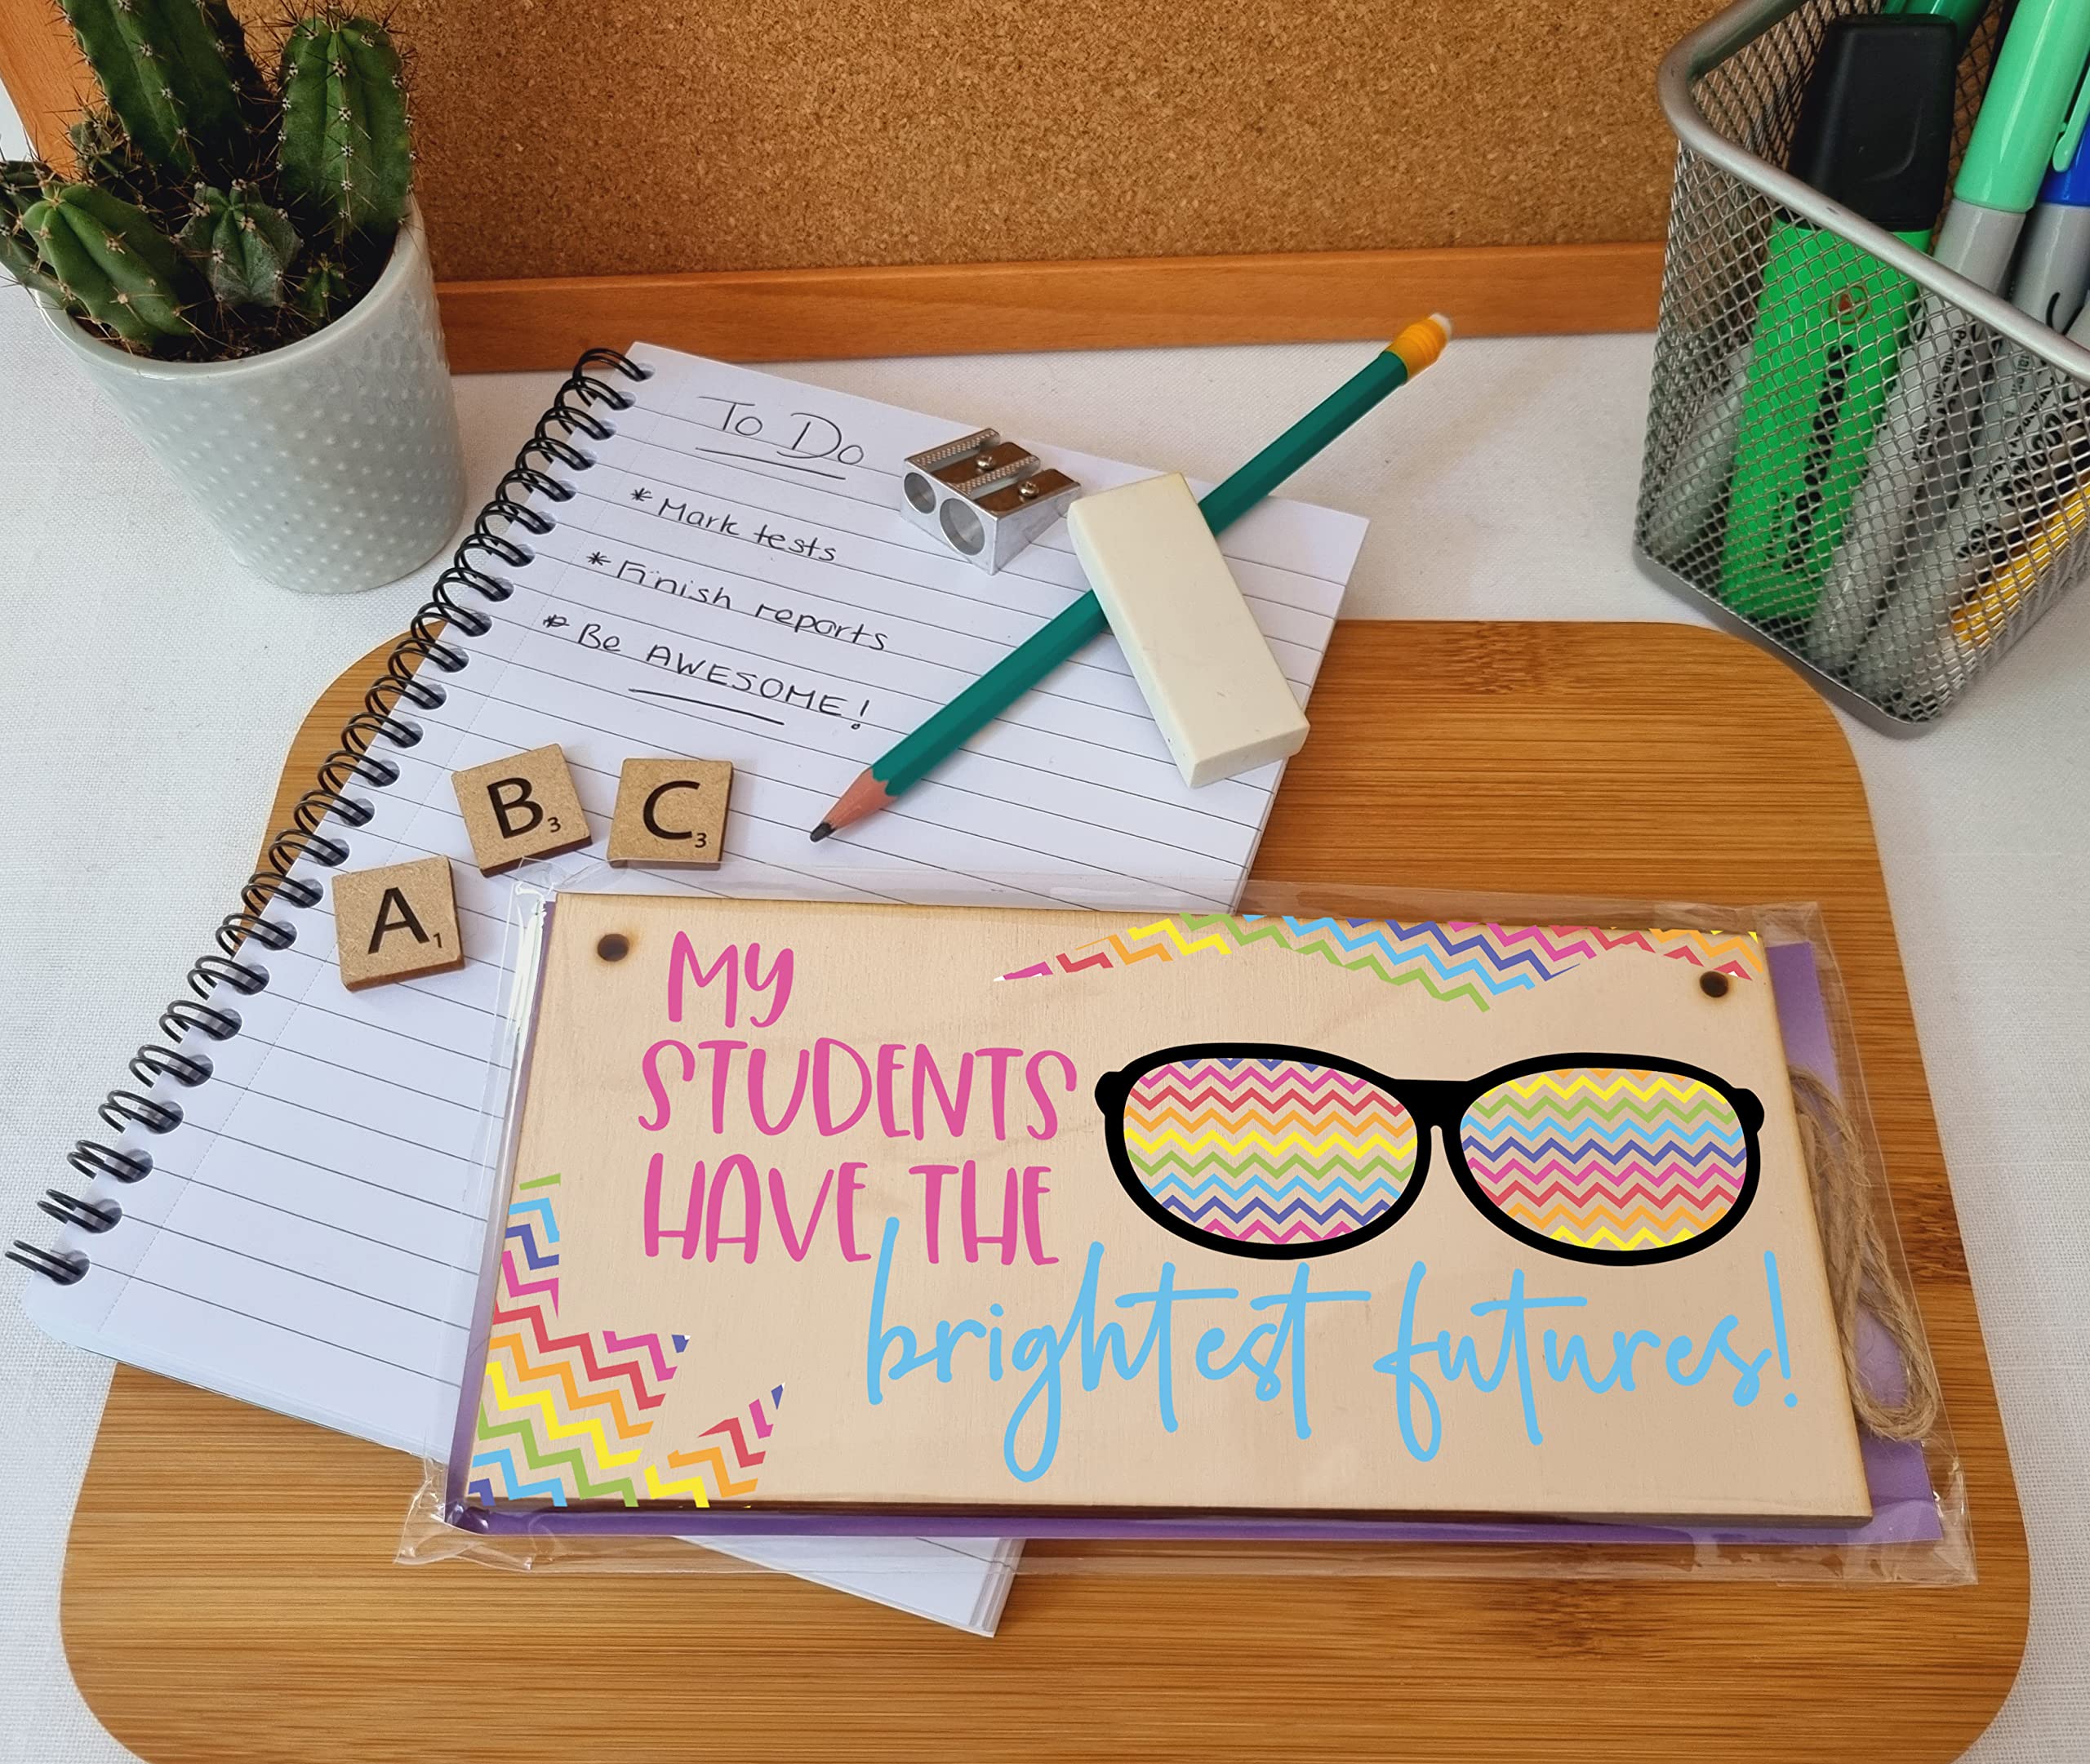 To Do
* Mark tests
* Finish reports
* Be AWESOME!
B3
C3
A1
MY
STUDENTS
HAVE THE
brightest futures!